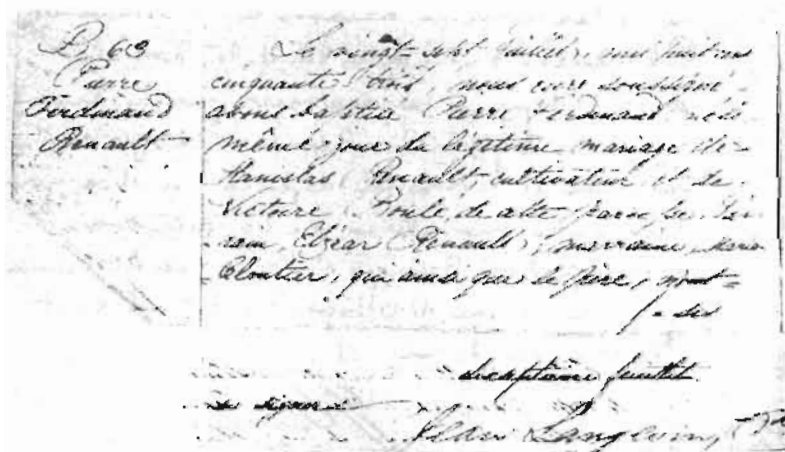 B 63
Pierre
Ferdinand
Renault
Le vingt-sept juillet, mil huit cent
cinquante trois, nous curé soussigné
avons baptisé Pierre Ferdinand né le
même jour du légitime mariage de
Stanislas Renault, cultivateur et de
Victoire Poulé, de cette paroisse. Par-
rain, Elzéar Renault, marraine, Marie
Cloutier, qui ainsi que le père, n'ont
deuxptième feuillet
su signer
Langevin, Ptre